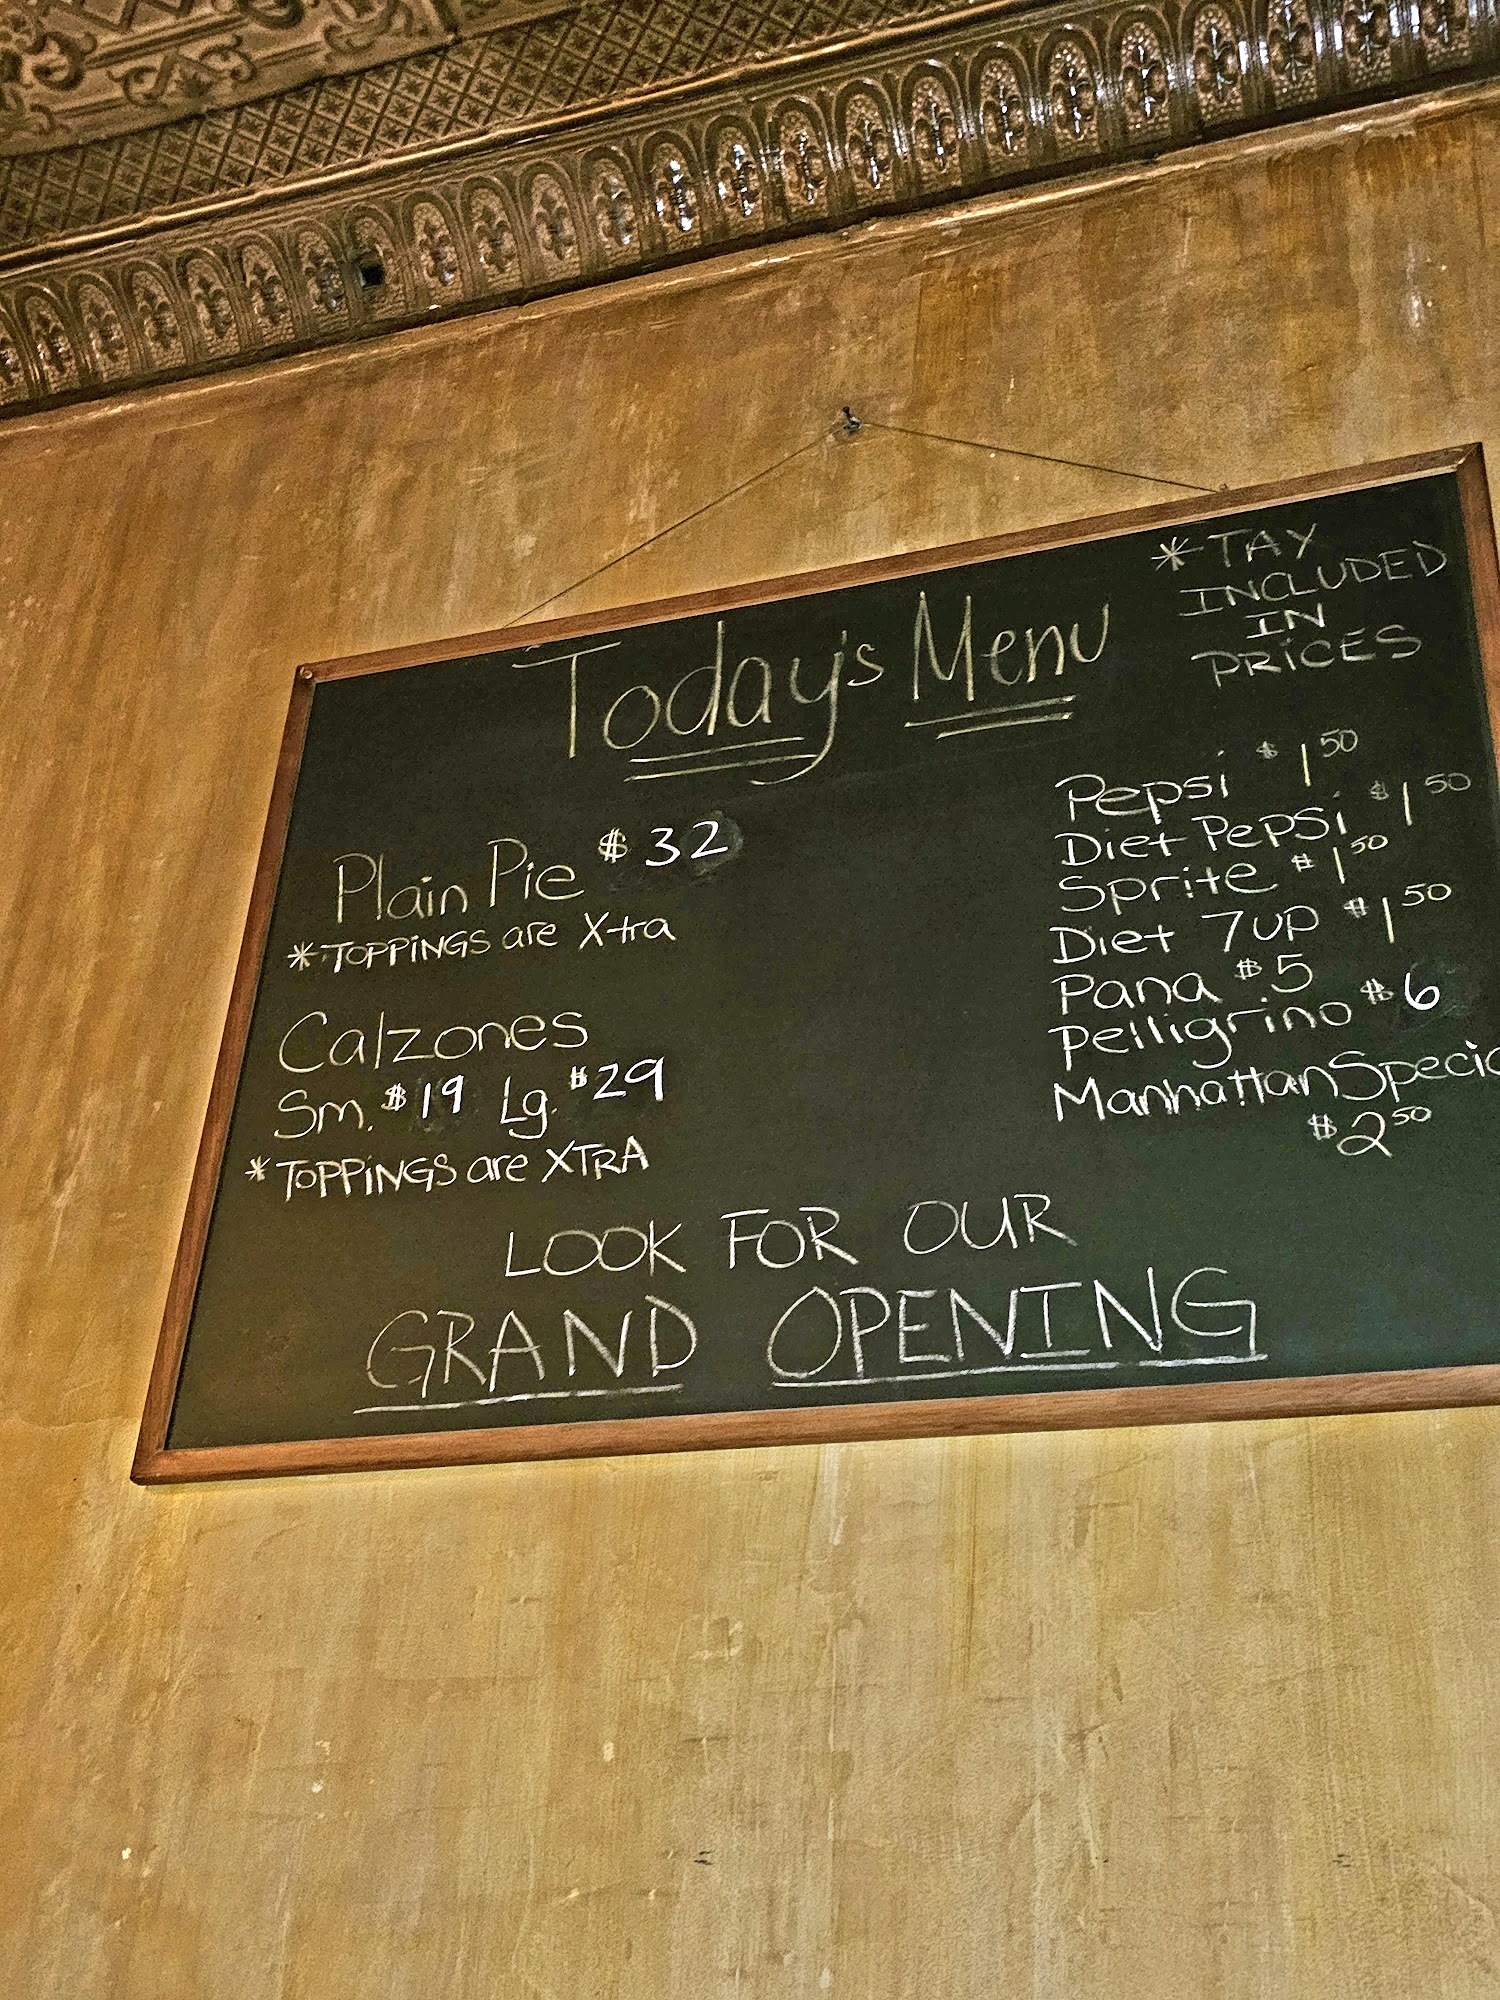 Today's Menu
*TAY
INCLUDED
IN
PRICES
Plain Pie $32
*TOPPINGS are Xtra
Calzones
Sm. $19 Lg. $29
*TOPPINGS are XTRA
Pepsi $1 50
Diet Pepsi $1 50
Sprite $1 50
Diet 7up $1 50
Pana $5
Pelligrino $6
Manhattan Specia
$2 50
LOOK FOR OUR
GRAND OPENING